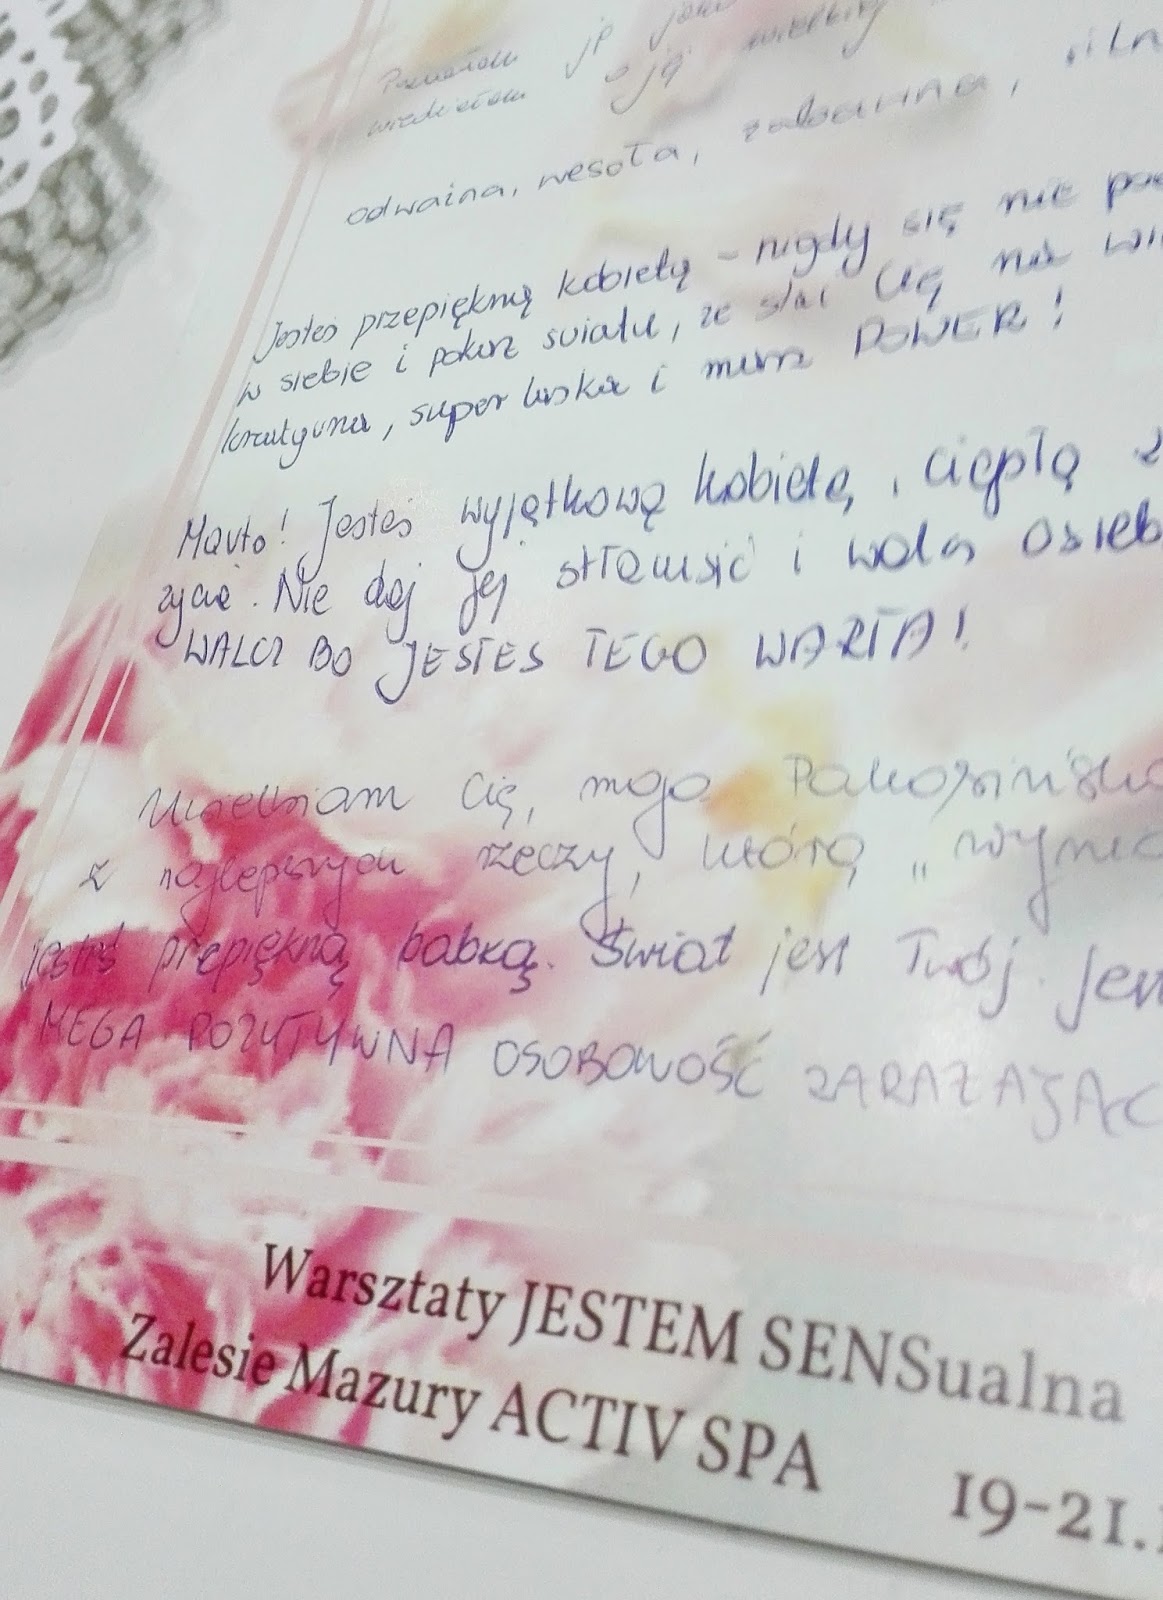 Poznałam ją jako
wiedziałam o jej wielkiej
odważna, wesoła, zabawna, siln
Jesteś przepiękną kobietą - nigdy się nie pod
w siebie i pokaż światu, że stać Cię na wi
kreatywna, super laska i masz POWER!
Marto! Jesteś wyjątkową kobietą, ciepłą z
życie. Nie daj jej stłamsić i walcz o sieb
WALCZ BO JESTEŚ TEGO WARTA!
Uwielbiam Cię, moja
z najlepszych rzeczy, którą „wynio
jesteś przepiękną babką. Świat jest Twój. Jes
MEGA POZYTYWNA OSOBOWOŚĆ ZARAŻAJĄC
Warsztaty JESTEM SENSualna
Zalesie Mazury ACTIV SPA
19-21.